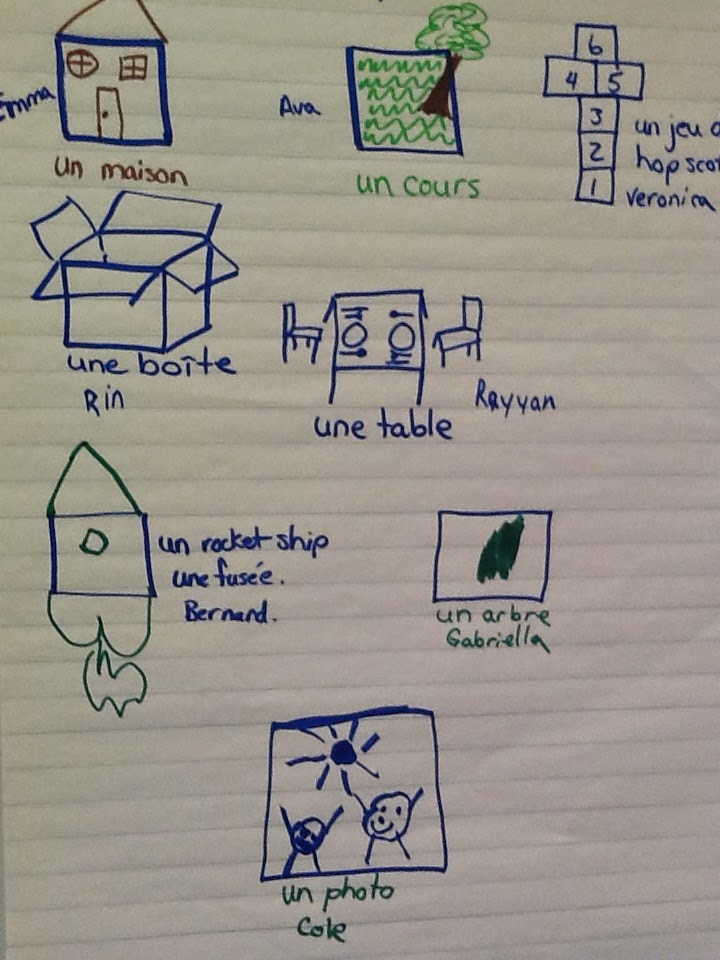 Emma
un maison
Ava
un cours
6
4 5
3
2
1
un jeu
veronica
une boîte
Rin
une table
Rayyan
un rocket ship
une fusée.
Bernard.
un arbre
Gabriella
un photo
Cole